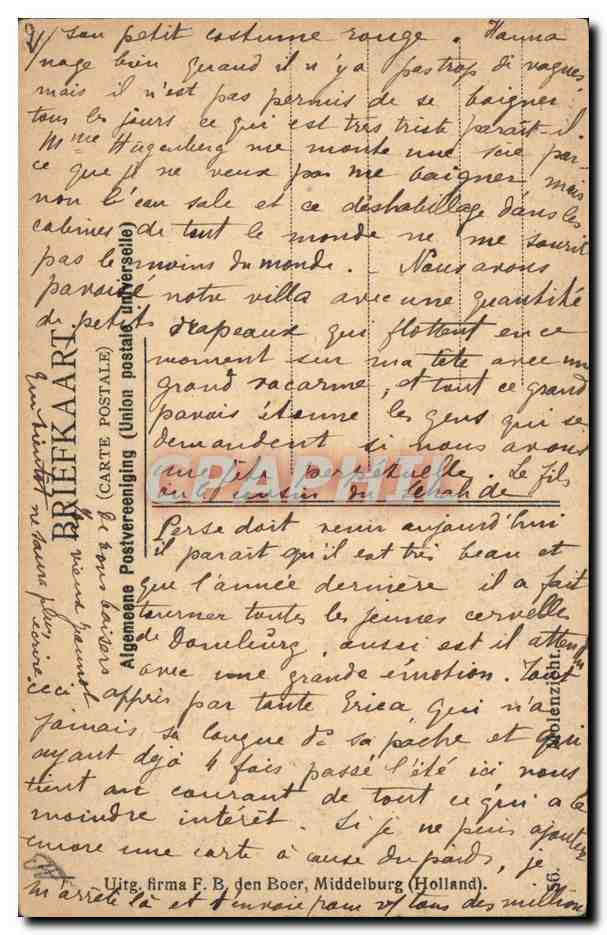 son petit costume rouge. Hanna
nage bien quand il n'y a pas trop de vagues,
mais il n'est pas permis de se baigner
tous les jours ce qui est très triste paraît-il.
Mme Hugenberg me monte une scie par-
ce que je ne veux pas me baigner, mais
non l'eau sale et ce déshabillage dans les
cabines de tout le monde ne me sourit
pas le moins du monde. - Nous avons
pavoisé notre villa avec une quantité
de petits drapeaux qui flottent en ce
moment sur ma tête avec un
grand vacarme, et tout ce grand
pavois étonne les gens qui se
demandent si nous avons
une fête perpétuelle. Le fils
ou le cousin du Schah de
Perse doit venir aujourd'hui
il parait qu'il est très beau et
que l'année dernière il a fait
tourner toutes les jeunes cervelles
de Domburg, aussi est il attendu
avec une grande émotion. Tout
ceci appris par tante Erica qui n'a
jamais sa langue ds sa poche et qui
ayant déjà 4 fois passé l'été ici nous
tient au courant de tout ce qui a le
moindre intérêt. Si je ne puis ajouter
encore une carte à cause du poids, je
m'arrête là et envoie pour vs tous des millions
de bons baisers
vieux
qui bientôt ne saura plus
écrire.
BRIEFKAART
(CARTE POSTALE)
Algemeene Postvereeniging (Union postale universelle)
Molenzicht.
56.
Uitg. firma F. B. den Boer, Middelburg (Holland).